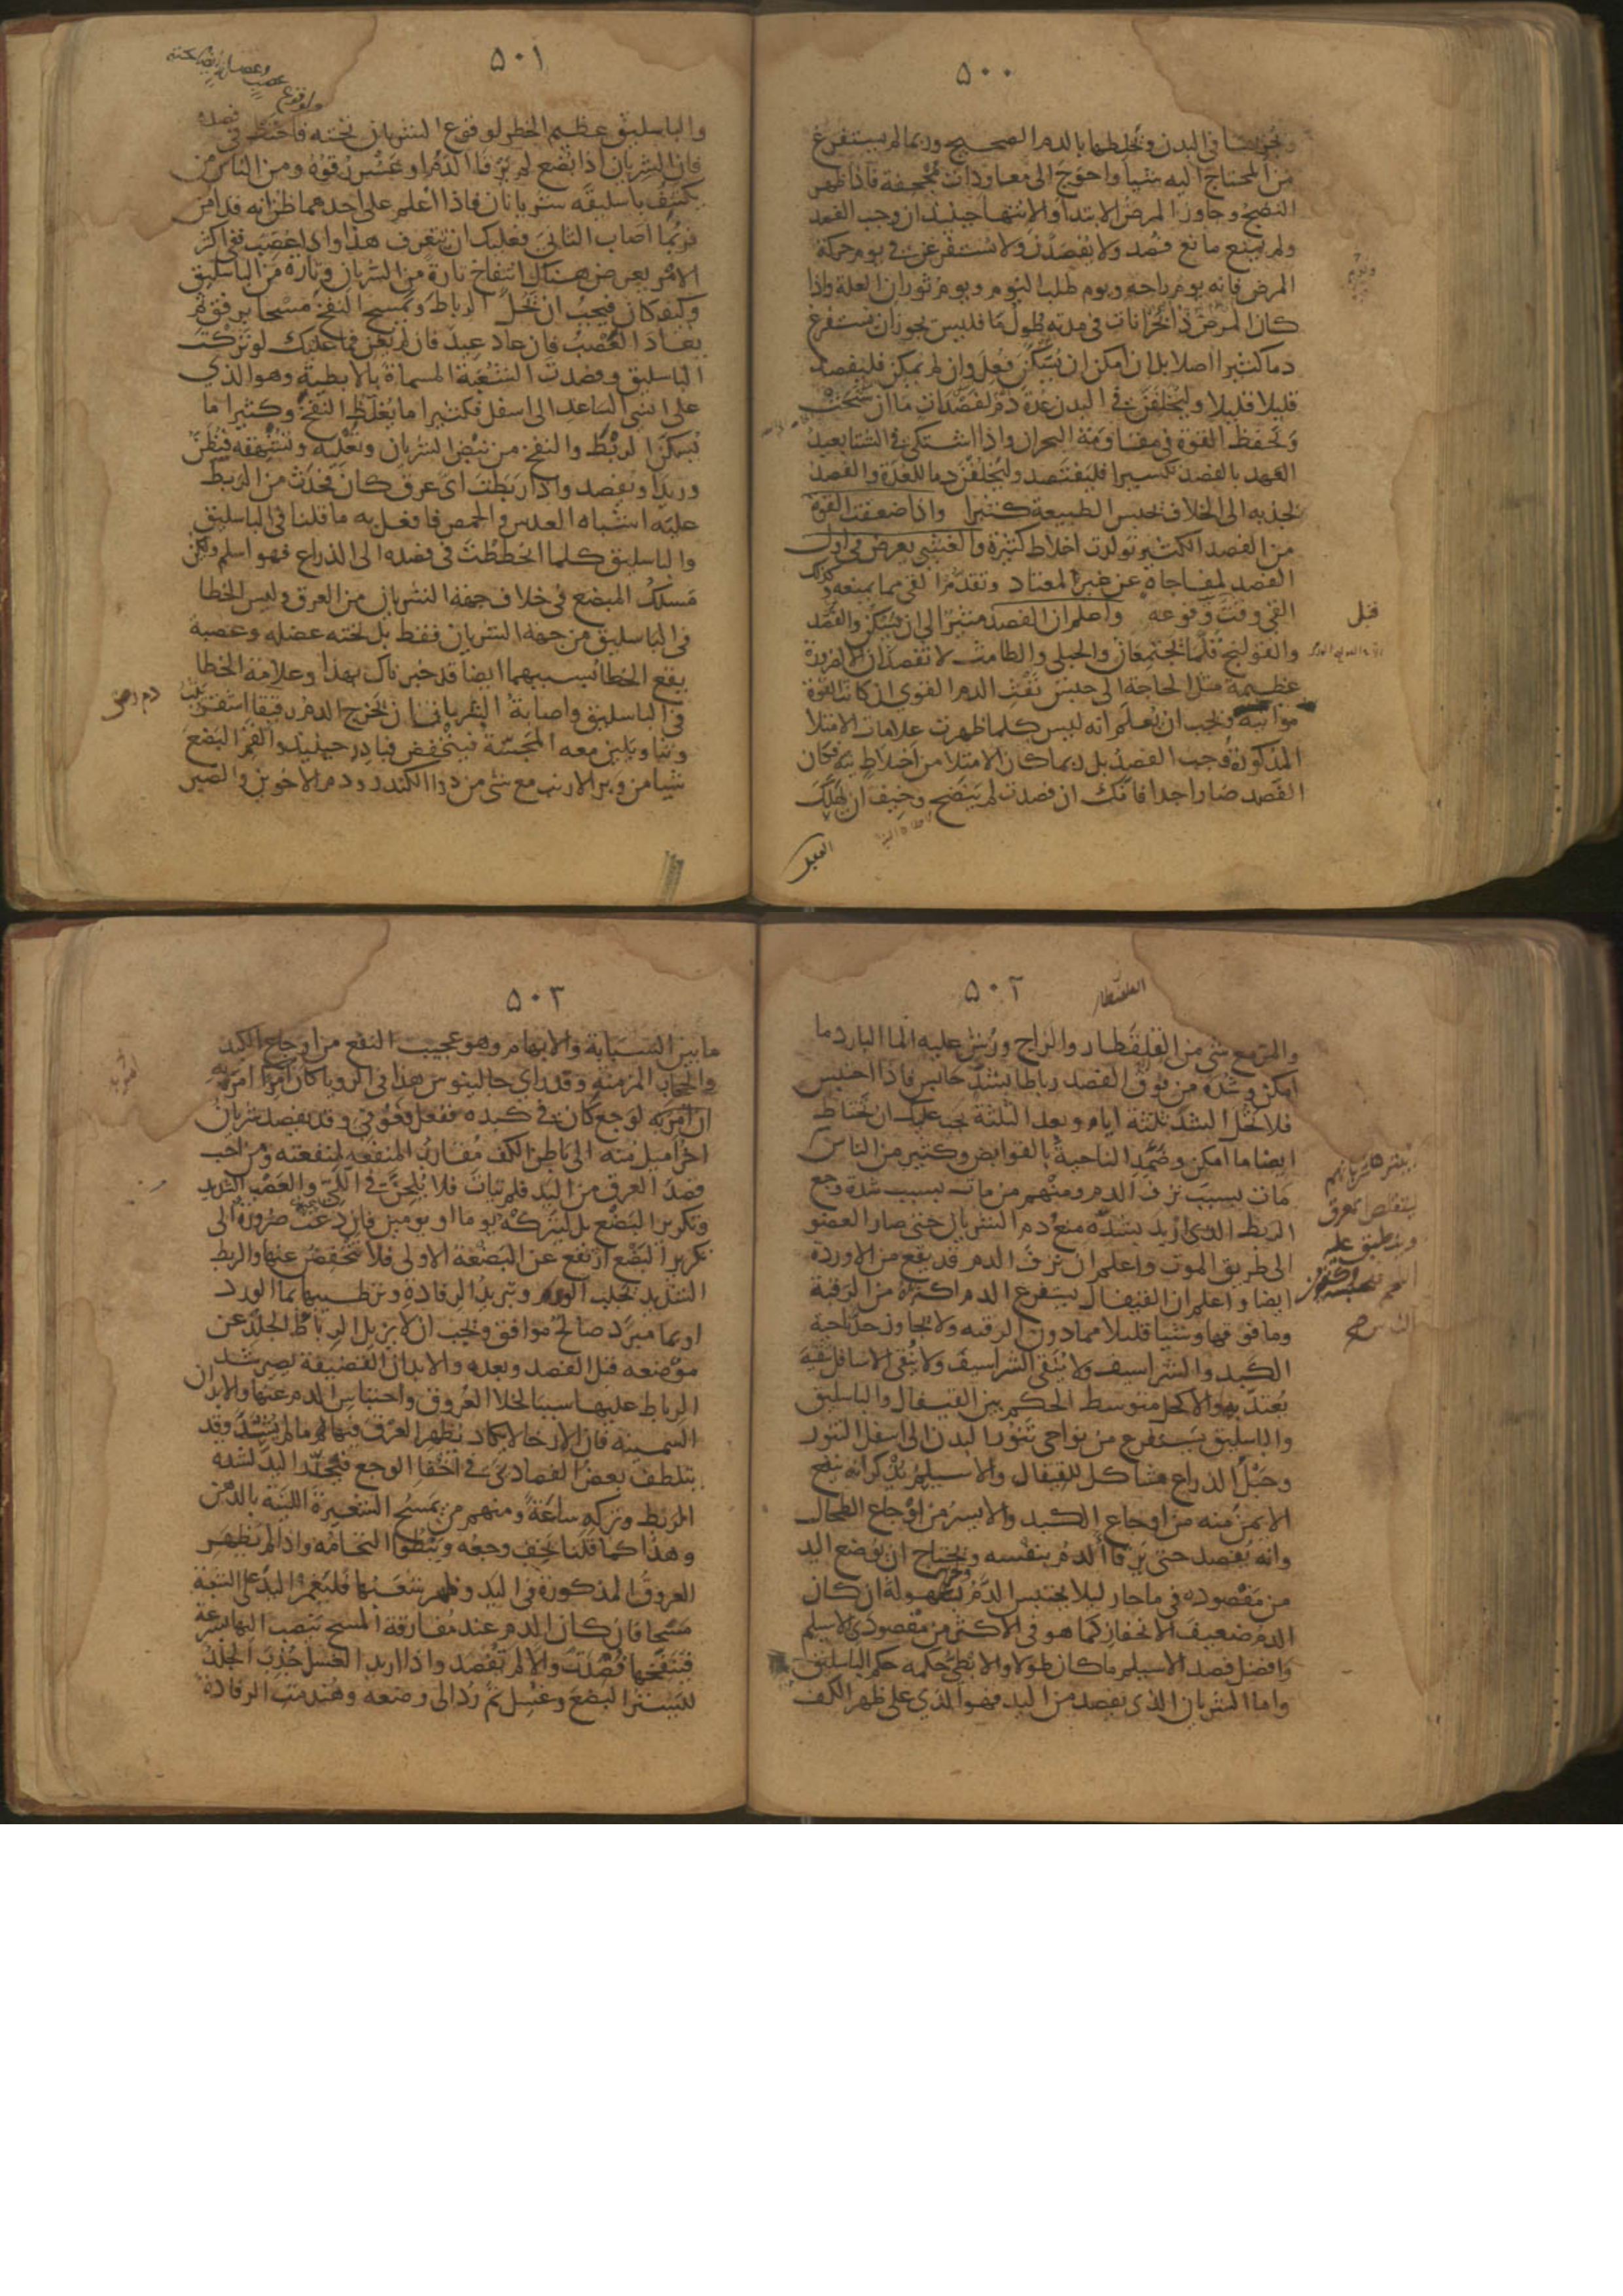 ٥٠٠
ويجريها في البدن ويخلطها بالدم الصحيح وربما لم يستفرغ
من المحتاج اليه شيا واحوج الى معاودات مجحفة فاذا ظهر
النضج وجاوز المرض الابتدا والانتها حينيذ ان وجب الفصد
ولم يمنع مانع فصد ولا يفصدن ولا يستفرغن في يوم حركة
المرض فانه يوم راحه ويوم طلب النوم ويوم ثوران العلة واذا
كان المرض ذا بحرانات في مدته طول ما فليس يجوز ان يستفرغ
دما كثيرا اصلا بل ان امكن ان يسكن فعل وان لم يمكن فليفصد
قليلا قليلا وليخلفن في البدن عدة دم لفصدات ما ان سنحت
وتحفظ القوة في مقاومة البحران واذا اشتكى في الشتا بعيد
العهد بالفصد تكسيرا فليفتصد وليخلفن دما للعدة والفصد
لجذبه الى الخلاف يحبس الطبيعة كثيرا واذا ضعفت القوة
من الفصد الكثير تولدت اخلاط كثيرة والغشي يعرض في اول
الفصد لمفاجاة عن غير المعتاد وتقدم القي مما يمنعه وكذلك
القي وقت وقوعه واعلم ان الفصد مثير الى ان يسكن والفصد
قبل
والقولنج قلما يجتمعان والحبلى والطامث لا تفصدان الا لضرورة
عظيمة مثل الحاجة الى حبس نفث الدم القوي ان كانت القوة
مواتية ويجب ان يعلم انه ليس كلما ظهرت علامات الامتلا
المذكورة وجب الفصد بل ربما كان الامتلا من اخلاط نية فكان
الفصد ضارا جدا فانك ان فصدت لم ينضج وخيف ان يهلك
العليل
٥٠١
والباسليق عظيم الخطر لوقوع الشريان تحته فاحتط في فصده
فان الشريان اذا بضع لم يرقا الدم او عسر رقوه ومن الناس من
يكتنف باسليقه شريانان فاذا اعلم على احدهما ظن انه قد امن
فربما اصاب الثاني فعليك ان تتعرف هذا واذا عصب ففي اكثر
الامر يعرض هناك انتفاخ تارة من الشريان وتارة من الباسليق
وكيف كان فيجب ان تحل الرباط ويمسح النفخ مسحا برفق ثم
يعاد العصب فان عاد عيد فان لم يغن فما عليك لو تركت
الباسليق وفصدت الشعبة المسماة بالابطية وهو الذي
على انسي الساعد الى اسفل فكثيرا ما يغلظ النفخ وكثيرا ما
يسكن الربط والنفخ من نبض الشريان وتعليه وتشهقه فيظن
وريدا ويفصد واذا ربطت اي عرق كان فحدث من الربط
عليه اشباه العدس والحمص فافعل به ما قلنا في الباسليق
والباسليق كلما انحططت في فصده الى الذراع فهو اسلم وليكن
مسلك المبضع في خلاف جهة الشريان من العرق وليس الخطا
في الباسليق من جهة الشريان فقط بل تحته عضلة وعصبة
يقع الخطا بسببهما ايضا قد خبرناك بهذا وعلامة الخطا
في الباسليق واصابة الشريان ان يخرج الدم رقيقا اشقر يثب
وثبا ويلين معه المجسة فينخفض فبادر حينيذ والقم المبضع
شيا من وبر الارنب مع شي من دقاق الكندر ودم الاخوين والصبر
٥٠٢
والمر مع شي من القلقطار والزاج ورش عليه الما البارد ما
امكن وشده من فوق الفصد رباطا يشد حابس فاذا احتبس
فلا تحل الشد ثلثة ايام وبعد الثلثة يجب عليك ان تحتاط
ايضا ما امكن وضمد الناحية بالقوابض وكثير من الناس
مات بسبب نزف الدم ومنهم من مات بسبب شدة وجع
الربط الذي اريد بشده منع دم الشريان حتى صار العضو
الى طريق الموت واعلم ان نزف الدم قد يقع من الاوردة
ايضا واعلم ان القيفال يستفرغ الدم اكثره من الرقبة
وما فوقها وشيا قليلا مما دون الرقبه ولا يجاوز حد ناحية
الكبد والشراسيف ولا ينقي الشراسيف ولا ينقي الاسافل تنقية
يعتد بها والاكحل متوسط الحكم بين القيفال والباسليق
والباسليق يستفرغ من نواحي تنور البدن الى اسفل التنور
وحبل الذراع مشاكل للقيفال والاسيلم يذكر انه ينفع
الايمن منه من اوجاع الكبد والايسر من اوجاع الطحال
وانه يفصد حتى يرقا الدم بنفسه ويحتاج ان توضع اليد
من مفصوده في ما حار ليلا يحتبس الدم وليخرج بسهولة ان كان
الدم ضعيف الانحفاز كما هو في الاكثر من مفصودي الاسيلم
وافضل فصد الاسيلم ما كان طولا والابطي حكمه حكم الباسليق
واما الشريان الذي يفصد من اليد فهو الذي على ظهر الكف
٥٠٣
ما بين السبابة والابهام وهو عجيب النفع من اوجاع الكبد
والحجاب المزمنة وقد راى جالينوس هذا في الرويا كان امرا امره به
ان امر به لوجع كان في كبده ففعل فعوفي وقد يفصد شريان
اخر اميل منه الى باطن الكف مقارب المنفعة لمنفعته ومن احب
فصد العرق من اليد فلم يتات فلا يلحن في اللي والعصب الشديد
وتكرير البضع بل ليتركه يوما او يومين فان دعت ضرورة الى
تكرير البضع ارتفع عن البضعة الاولى فلا تنخفض عنها والربط
الشديد يجلب الورم وتبريد الرفادة وترطيبها بما الورد
او بما مبرد صالح موافق ويجب ان لا يزيل الرباط الجلد عن
موضعه قبل الفصد وبعده والابدان القضيفة يصير شد
الرباط عليها سببا لخلا العروق واحتباس الدم عنها والابدان
السمينة فان الارخا لا يكاد يظهر العرق فيها لم ما لم يشد وقد
يتلطف بعض الفصادين في اخفا الوجع فيخدر اليد لشدة
الربط وتركه ساعة ومنهم من يمسح الشعيرة اللينة بالدهن
وهذا كما قلنا يخف وجعه ويبطو التحامه واذا لم يظهر
العروق المذكورة في اليد وظهر شعبها فليغمز اليد على الشعبة
مسحا فان كان الدم عند مفارقة المسح ينصب اليها بسرعة
فتنفخها فصدت والا لم تفصد واذا اريد الغسل جذب الجلد
ليستر البضع وغسل ثم رد الى وضعه وهندمت الرفادة